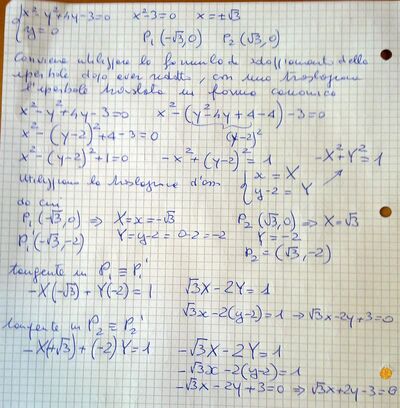 {x²-y²+4y-3=0    x²-3=0    x=±√3
y=0    P₁(-√3,0)    P₂(√3,0)
Conviene utilizzare le formule di sdoppiamento della
iperbole dopo aver ridotto, con una traslazione
l'iperbole traslata in forma canonica
x²-y²+4y-3=0    x²-(y²-4y+4-4)-3=0
x²-(y-2)²+4-3=0    (y-2)²
x²-(y-2)²+1=0    -x²+(y-2)²=1    -X²+Y²=1
Utilizziamo la traslazione d'assi    {x=X
y-2=Y
da cui
P₁(-√3,0) ⇒ X=x=-√3    P₂(√3,0) ⇒ X=√3
P₁'(-√3,-2)    Y=y-2=0-2=-2    Y=-2
P₂=(√3,-2)
tangente in P₁≡P₁'
-X(-√3)+Y(-2)=1    √3X-2Y=1
√3x-2(y-2)=1 → √3x-2y+3=0
tangente in P₂≡P₂'
-X(+√3)+(-2)Y=1    -√3X-2Y=1
-√3x-2(y-2)=1
-√3x-2y+3=0 ⇒ √3x+2y-3=0